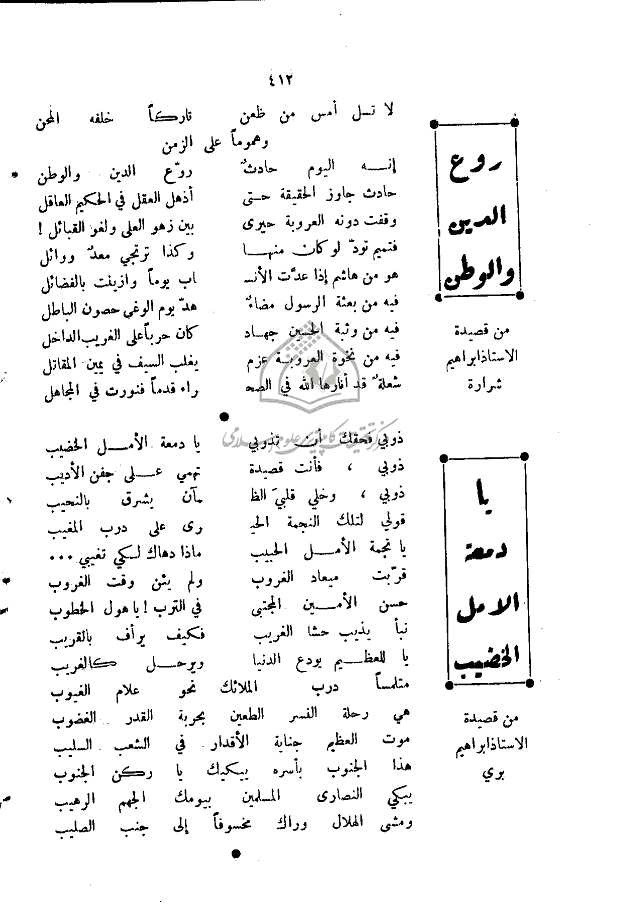 ٤١٢
روع
الدين
والوطن
من قصيدة
الاستاذ ابراهيم
شرارة
لا تسل أمس من ظعن تاركاً خلفه المحن
وهموماً على الزمن
إنـه اليوم حادثٌ روّع الدين والوطن
حادث جاوز الحقيقة حتى أذهل العقل في الحكيم العاقل
وقفت دونه العروبة حيرى بين زهو العلى ولغو القبائل !
فتميم تودّ لو كان منهـا وكذا ترتجي معدٌ ووائل
هو من هاشم إذا عدّت الأنسـ اب يوماً وازينت بالفضائل
فيه من بعثة الرسول مضاءٌ هدّ يوم الوغي حصون الباطل
فيه من وثبة الحسين جهاد كان حرباً على الغريب الداخل
فيه من نخوة العروبـة عزم يغلب السيف في يمين المقاتل
شعلةٌ قد أنارها الله في الصحـ راء قدماً فنورت في المجاهل
يا
دمعة
الامل
الخضيب
من قصيدة
الاستاذ ابراهيم
بري
ذوبي فحقك أن تذوبي يا دمعة الأمـل الخضيب
ذوبي ، فأنت قصيدة تهمي عـلى جفن الأديب
ذوبي ، وخلي قلبيَ الظـ مآن يشرق بالنحيب
قولي لتلك النجمة الحيـ رى على درب المغيب
يا نجمة الأمـل الحبيب ماذا دهاك لـكي تغيبي ...
قرّبت ميعاد الغروب ولم يئن وقت الغروب
حسن الأمـين المجتبى في الترب ! يا هول الخطوب
نبأ يذيب حشا الغريب فكيف يرأف بالقريب
يا للعظـيم يودع الدنيا ويرحل كالغريب
متلمساً درب الملائك نحو علام الغيوب
هي رحلة النسر الطعين بحربة القدر الغضوب
موت العظيم جناية الأقدار في الشعب السليب
هذا الجنوب بأسره يبكيك يا ركن الجنوب
يبكي النصارى المسلمين بيومك الجهم الرهيب
ومشى الهلال وراك مخسوفاً إلى جنب الصليب